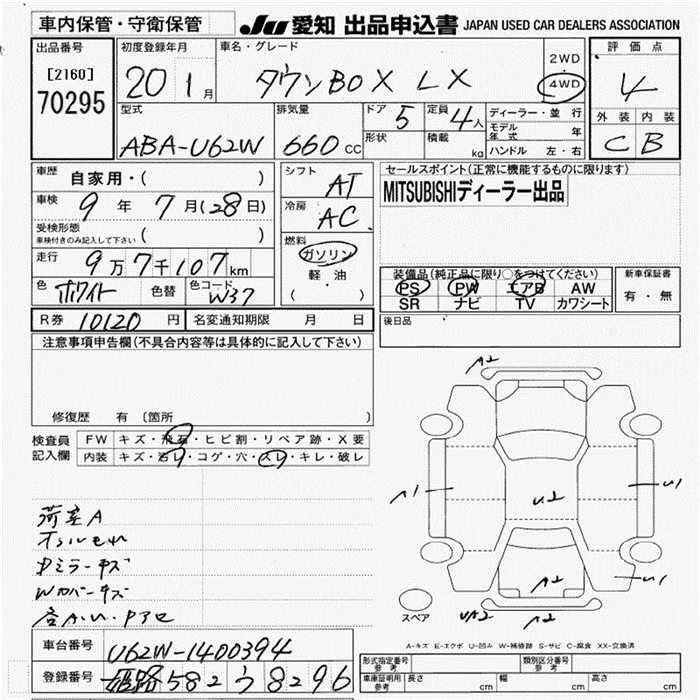 車内保管・守衛保管
JU 愛知 出品申込書 JAPAN USED CAR DEALERS ASSOCIATION
出品番号
[2160]
70295
初度登録年月
20 1月
車名・グレード
タウンBOX LX
2WD
4WD
評価点
4
外装 内装
C B
型式
ABA-U62W
排気量
660 cc
ドア 5
形状
定員 4人
積載 kg
ディーラー・並行
モデル年式 年
ハンドル 左・右
車歴 自家用・( )
車検 9年 7月(28日)
受検形態
車検付きのみ記入して下さい ( )
走行 9万7千107km
色 ホワイト 色替 色コード W37
シフト AT
冷房 AC
燃料
ガソリン
軽油
( ・ )
セールスポイント(正常に機能するものに限ります)
MITSUBISHIディーラー出品
装備品(純正品に限り○をつけてください)
PS PW エアB AW
SR ナビ TV カワシート
新車保証書
有・無
R券 10120 円 名変通知期限 月 日
後日品
注意事項申告欄(不具合内容等は具体的に記入して下さい)
修復歴 有 〔箇所 〕
検査員
記入欄
FW キズ・飛石・ヒビ割・リペア跡・X要
内装 キズ・汚レ・コゲ・穴・スレ・キレ・破レ
荷室A
Dミラーキズ
Wカバーキズ
A2
A1
U2
U1
A2
U1
スペア
UA2
A2
A-キズ E-エクボ U-凹み W-補修跡 S-サビ C-腐食 XX-交換済
車台番号 U62W-1400394
登録番号 姫路582う8296
形式指定番号
参考
類別区分番号
参考
車庫証明用
参考
長さ cm 幅 cm 高さ cm